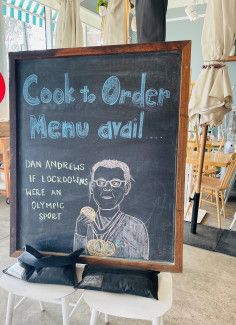 Cook to Order
Menu avail...
DAN ANDREWS
IF LOCKDOWNS
WERE AN
OLYMPIC
SPORT